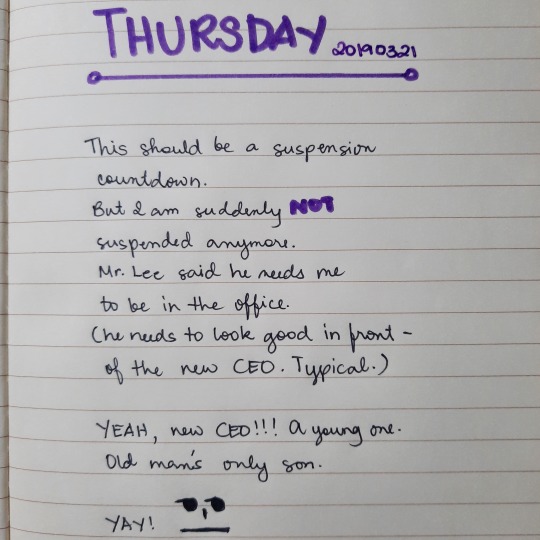 THURSDAY 20190321
This should be a suspension
countdown.
But I am suddenly NOT
suspended anymore.
Mr. Lee said he needs me
to be in the office.
(he needs to look good in front -
of the new CEO. Typical.)
YEAH, new CEO!!! A young one.
Old man's only son.
YAY!